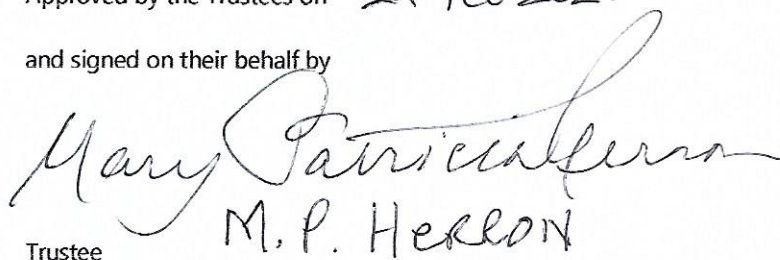 Approved by the Trustees on
and signed on their behalf by
Mary Patricia Herron
M. P. HERRON
Trustee